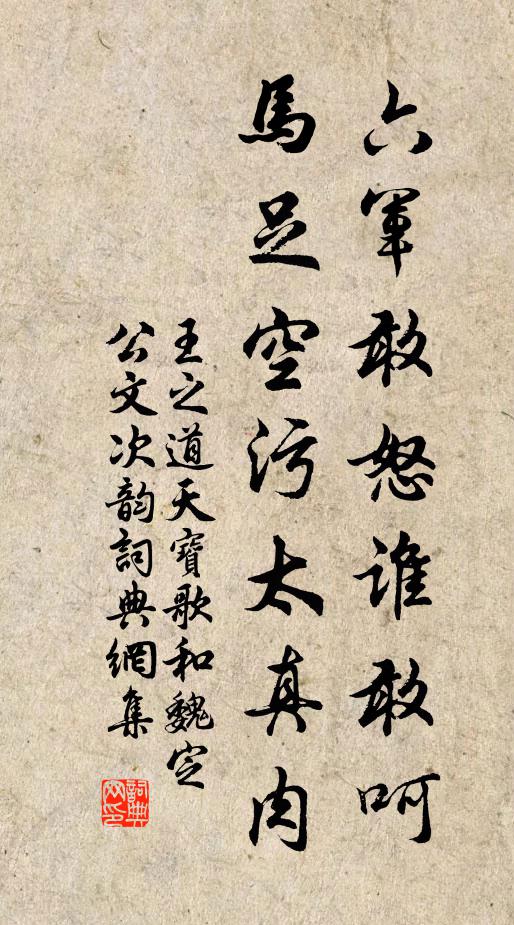 六軍敢怒誰敢呵
馬足空污太真肉
王之道天寶歌和魏定
公文次韵詞典網集
詞典網印